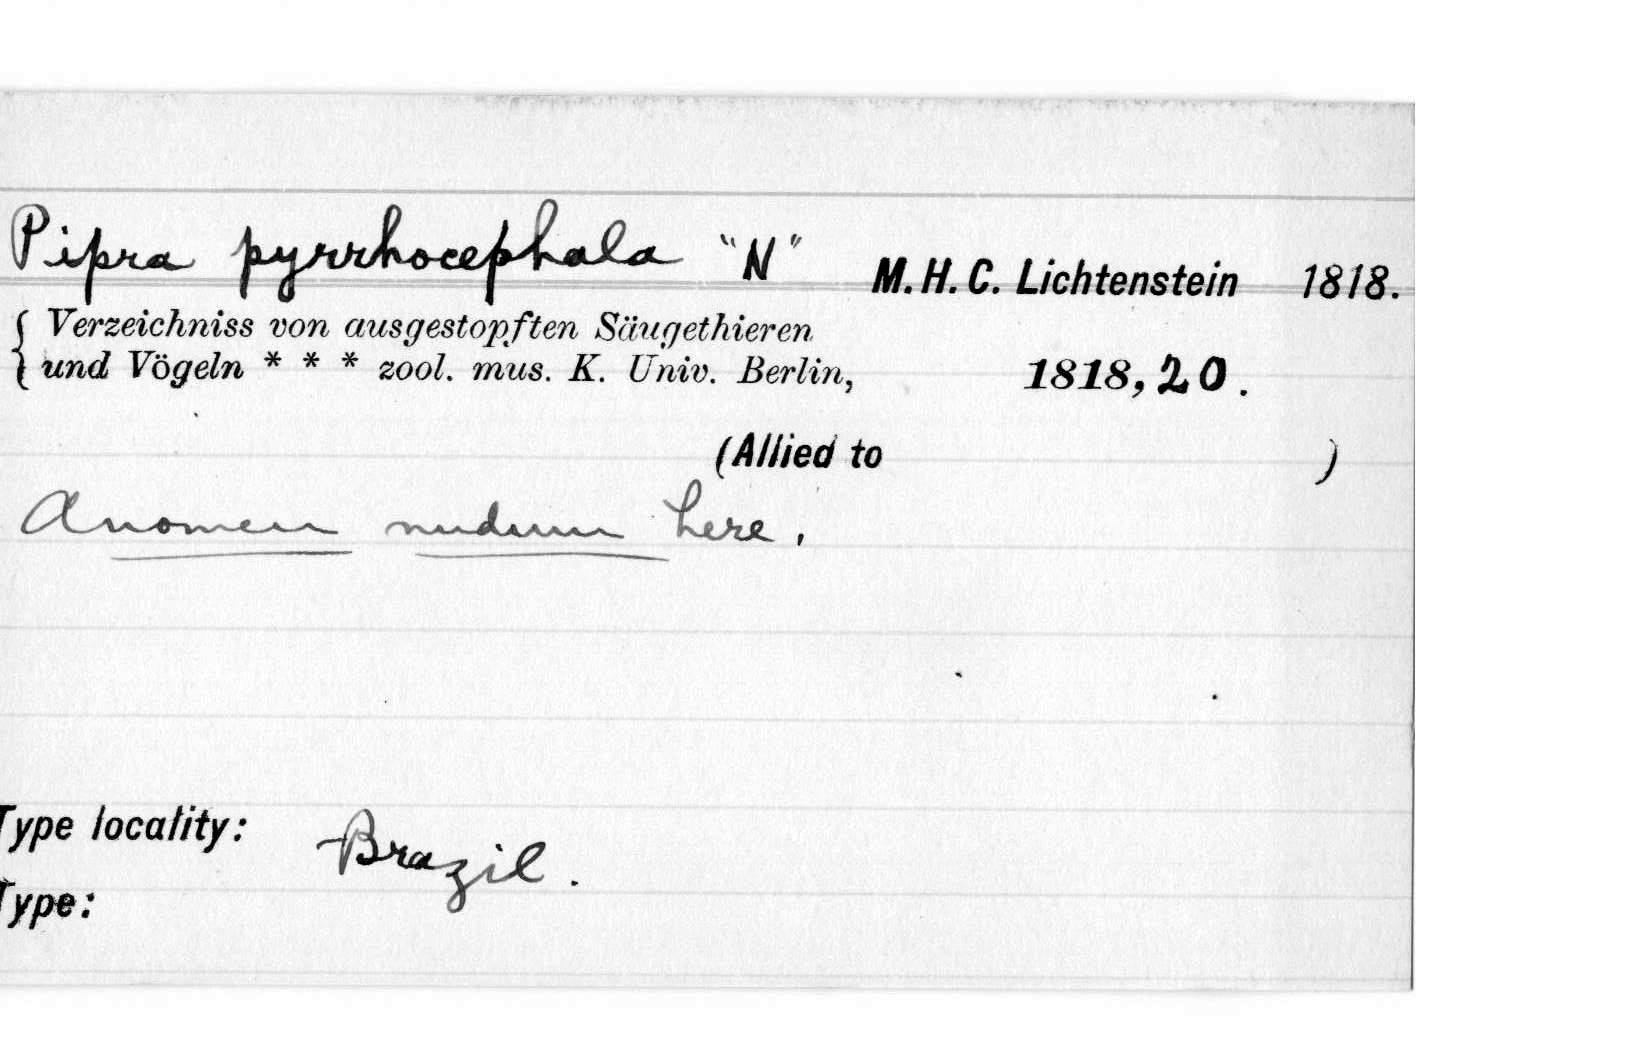 Pipra pyrrhocephala "N" M. H. C. Lichtenstein 1818.
{ Verzeichniss von ausgestopften Säugethieren
und Vögeln * * * zool. mus. K. Univ. Berlin, 1818, 20.
(Allied to )
A nomen nudum here.
Type locality: Brazil.
Type: